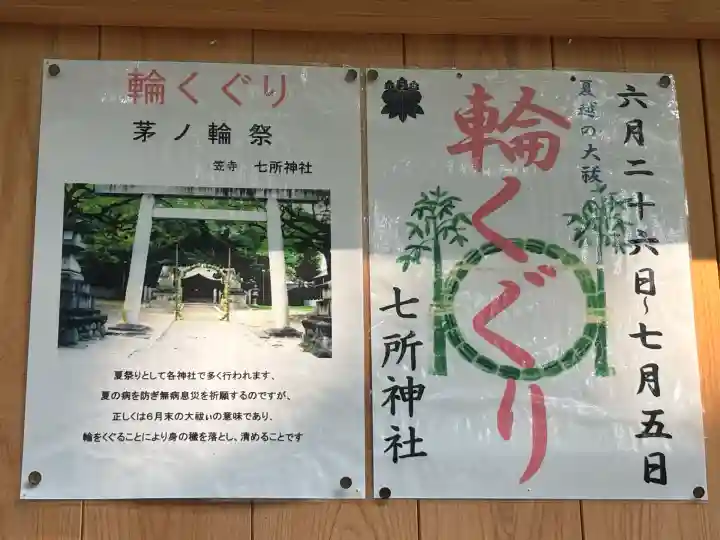 輪くぐり
茅ノ輪祭
笠寺 七所神社
夏祭りとして各神社で多く行われます、
夏の病を防ぎ無病息災を祈願するのですが、
正しくは6月末の大祓ぃの意味であり、
輪をくぐることにより身の穢を落とし、清めることです
六月二十六日~七月五日
夏越の大祓
輪くぐり
七所神社